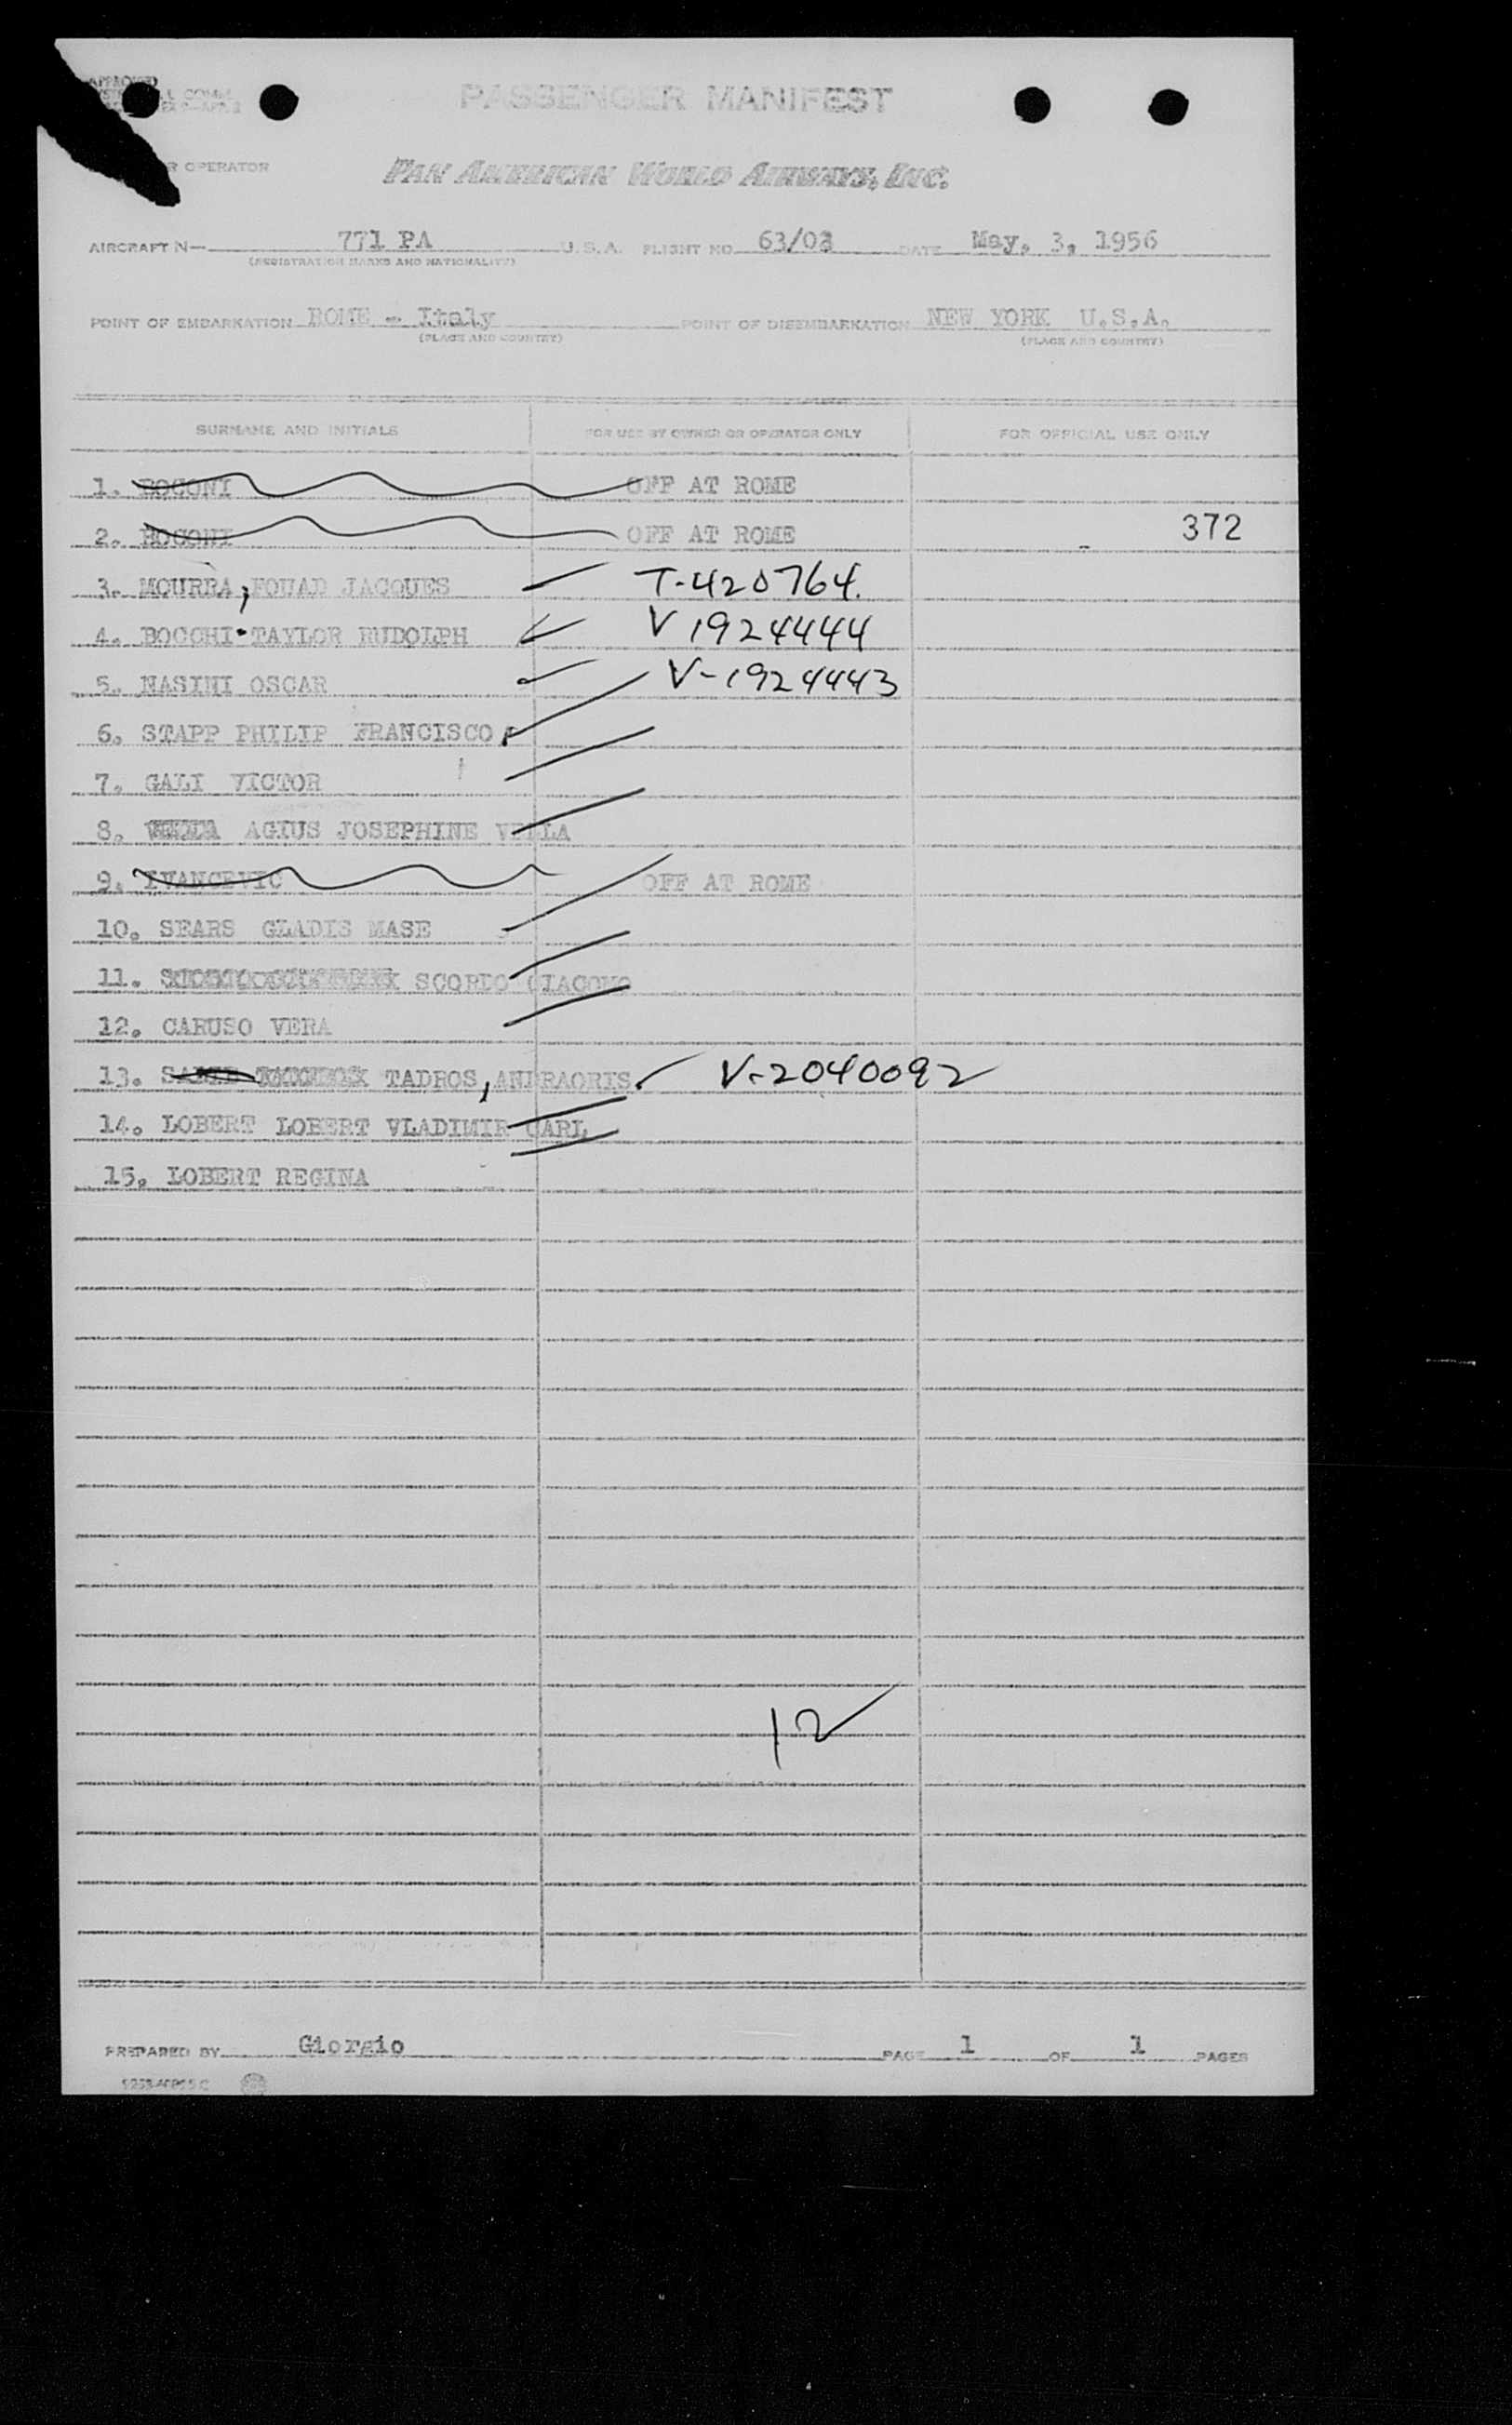 APPROVED
PASSENGER MANIFEST
R OPERATOR PAN AMERICAN WORLD AIRWAYS, INC.
AIRCRAFT N— 771 PA U.S.A. FLIGHT NO. 63/03 DATE May, 3, 1956
(REGISTRATION MARKS AND NATIONALITY)
POINT OF EMBARKATION ROME - Italy POINT OF DISEMBARKATION NEW YORK U.S.A.
(PLACE AND COUNTRY) (PLACE AND COUNTRY)
SURNAME AND INITIALS FOR USE BY OWNER OR OPERATOR ONLY FOR OFFICIAL USE ONLY
1. BOCONI OFF AT ROME
2. BOCONI OFF AT ROME 372
3. MOURRA, FOUAD JACQUES T-420764.
4. BOCCHI-TAYLOR RUDOLPH V 1924444
5. NASINI OSCAR V-1924443
6. STAPP PHILIP FRANCISCO
7. GALI VICTOR
8. AGIUS JOSEPHINE VELLA
9. IVANCEVIC OFF AT ROME
10. SEARS GLADIS MASE
11. SCORDO GIACOMO
12. CARUSO VERA
13. TADROS, ANDRAORIS V-2040092
14. LOBERT LOBERT VLADIMIR CARL
15. LOBERT REGINA
12
PREPARED BY Giorgio PAGE 1 OF 1 PAGES